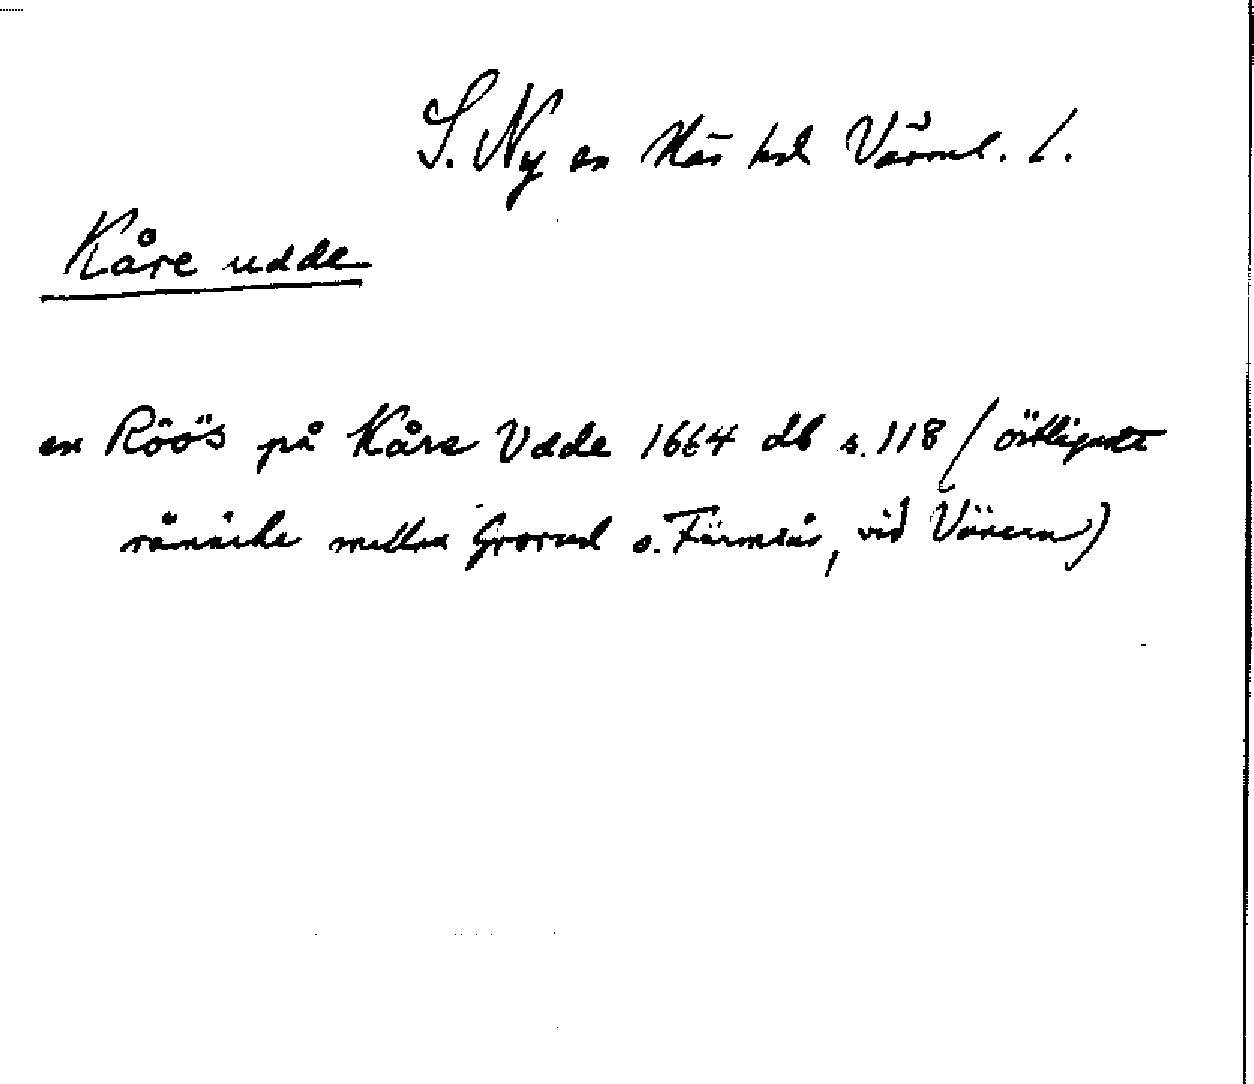 S. Ny sn Näs hd Värml. l.
Kåre udde
en Röös på Kåre Udde 1664 db s. 118 (östligaste
råmärke mellan Grorud o. Tärmsås, vid Vänern)